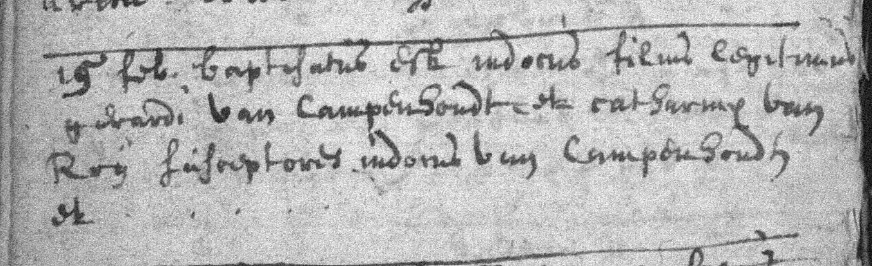 15 feb. baptisatus est indocus filius legitimus
gerardi van Campenhoudt et catharinæ van
Rey susceptores indocus van Campenhoudt
et